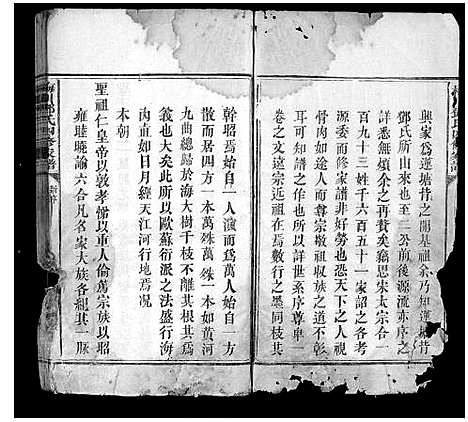 興家爲蓮塘昔之開基祖余乃知蓮塘昔
鄧氏所由來也至二公前後源流亦序之
詳悉無煩余之再贅矣竊思宋太宗合一
百九十三姓千六百五十一家詔之各考
源委而修家譜非好勞也恐天下之人視
骨肉如途人而尊宗敬祖收族之道不彰
也故知譜之作也所以詳世系序尊卑
卷之文遠宗近祖在焉數行之墨同枝共
幹昭焉始自一人漬而爲萬人始自一方
散而居四方一本萬殊萬殊一本如黃河
九曲總歸於海大樹千枝不離其根其
義也大矣此所以歐蘇衍派之法盛行海
內直如日月經天江河行地焉況
本朝
聖祖仁皇帝以敦孝悌以重人倫篤宗族以昭
雍睦曉諭六合凡名家大族各組其一脈